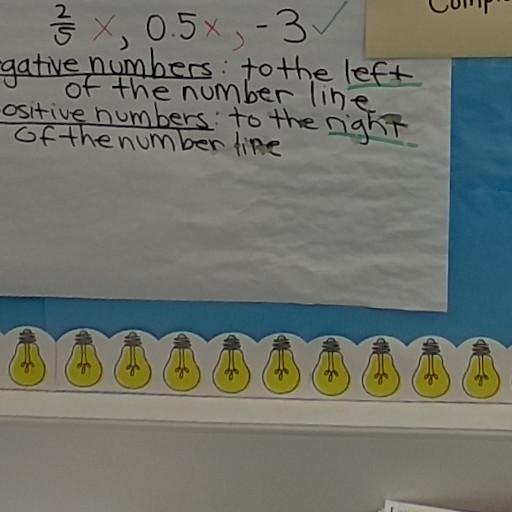 2/5 x, 0.5x, -3 ✓
gative numbers: to the left
of the number line
ositive numbers: to the right
of the number line
Comp